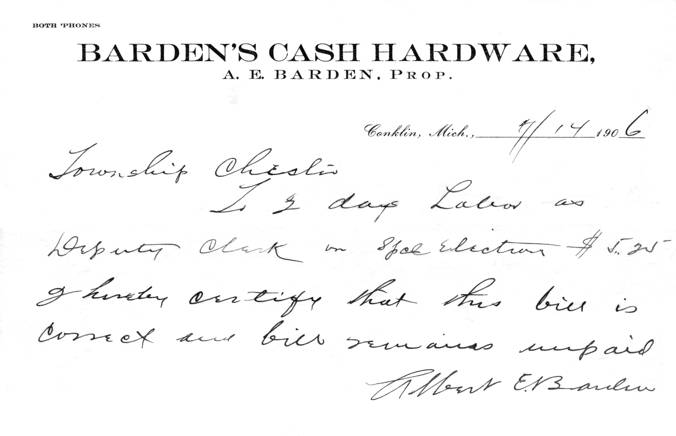 BOTH 'PHONES
BARDEN'S CASH HARDWARE,
A. E. BARDEN, PROP.
Conklin, Mich., 4/14 1906
Township Chester
To 3 days Labor as
Deputy Clerk on Spcl Election $5.25
I hereby certify that this bill is
correct and bill remains unpaid
Albert E. Barden